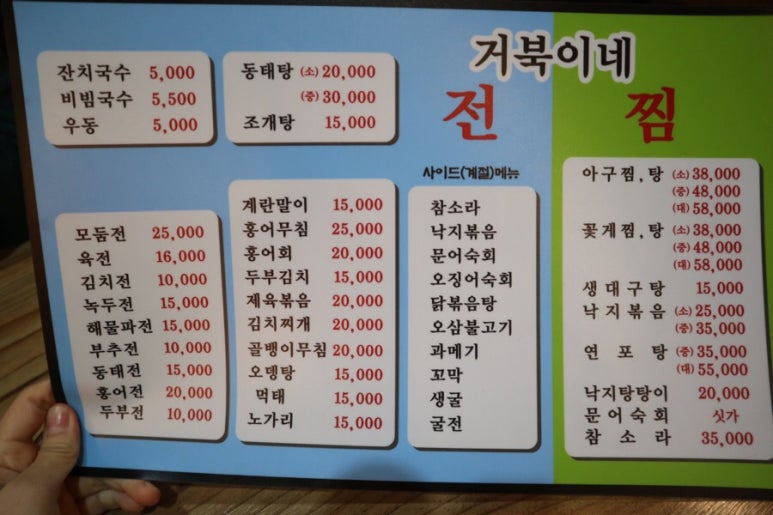 거북이네
전
찜
잔치국수 5,000
비빔국수 5,500
우동 5,000
동태탕 (소) 20,000
(중) 30,000
조개탕 15,000
모둠전 25,000
육전 16,000
김치전 10,000
녹두전 15,000
해물파전 15,000
부추전 10,000
동태전 15,000
홍어전 20,000
두부전 10,000
계란말이 15,000
홍어무침 25,000
홍어회 20,000
두부김치 15,000
제육볶음 20,000
김치찌개 20,000
골뱅이무침 20,000
오뎅탕 15,000
먹태 15,000
노가리 15,000
사이드(계절)메뉴
참소라
낙지볶음
문어숙회
오징어숙회
닭볶음탕
오삼불고기
과메기
꼬막
생굴
굴전
아구찜,탕 (소) 38,000
(중) 48,000
(대) 58,000
꽃게찜,탕 (소) 38,000
(중) 48,000
(대) 58,000
생대구탕 15,000
낙지볶음 (소) 25,000
(중) 35,000
연포탕 (중) 35,000
(대) 55,000
낙지탕탕이 20,000
문어숙회 싯가
참소라 35,000